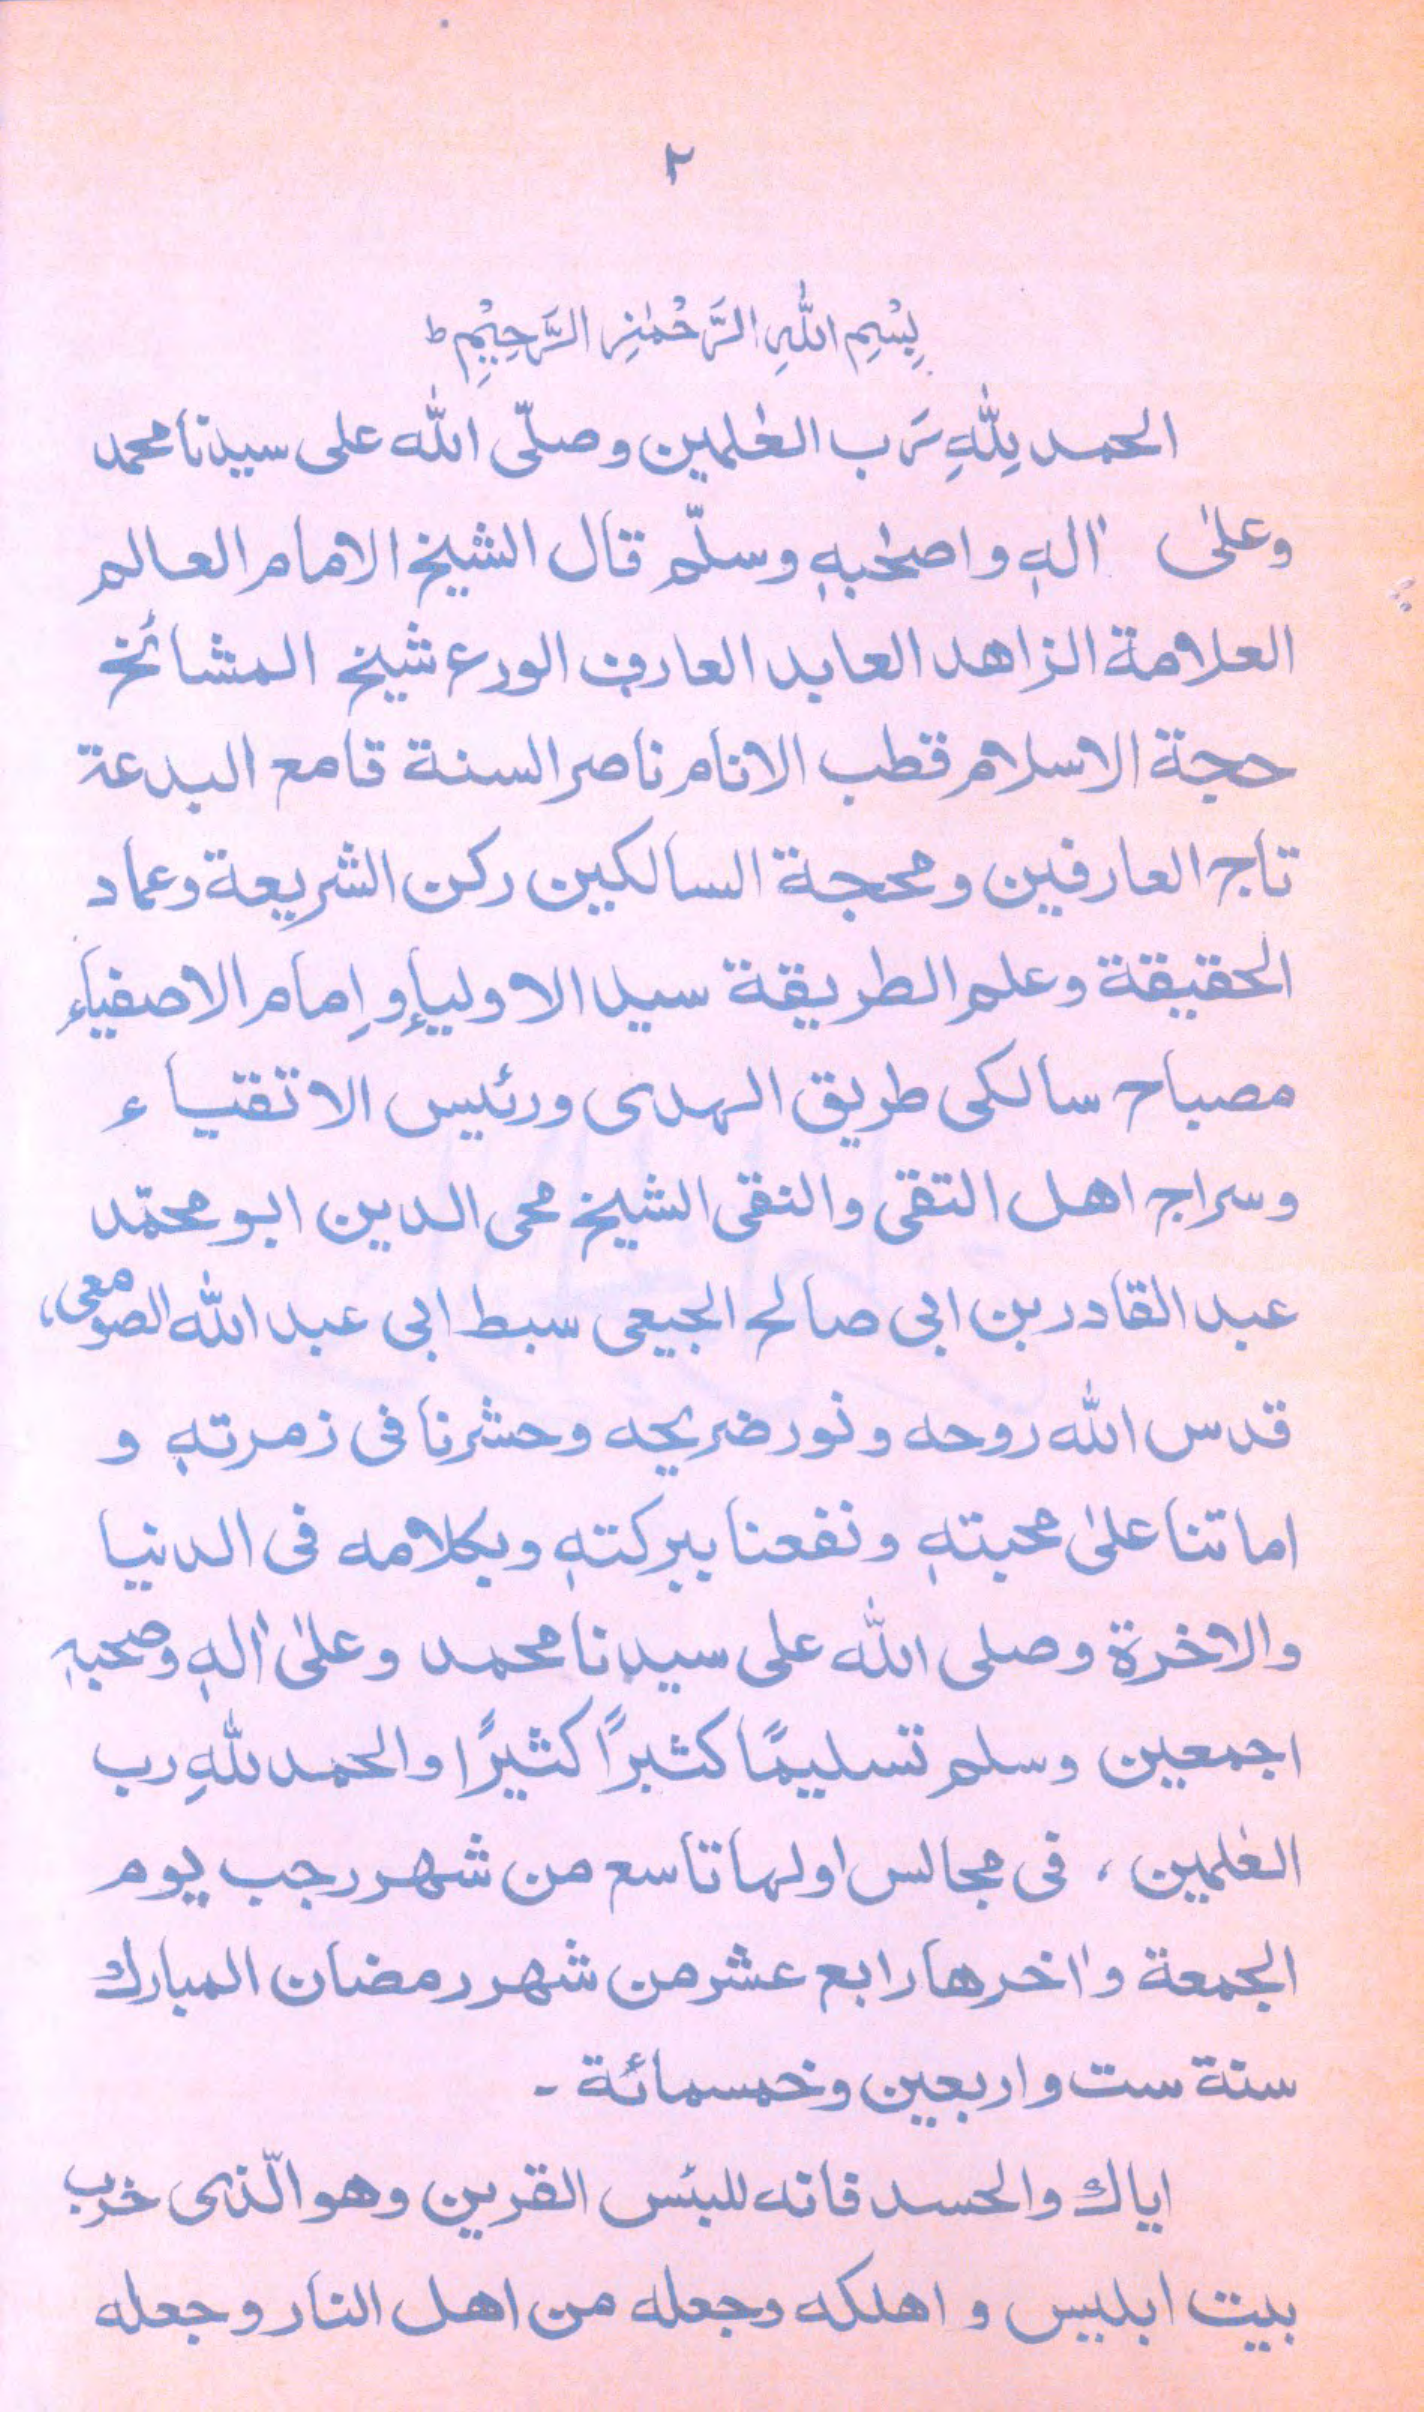 ٢
بِسْمِ اللّٰهِ الرَّحْمٰنِ الرَّحِيْمِ ط
الحمد لِلّٰهِ رَب العٰلمين وصلّى اللّٰه على سيدنا محمد
وعلىٰ اٰلهٖ واصحٰبهٖ وسلّم قال الشيخ الامام العالم
العلامة الزاهد العابد العارف الورع شيخ المشائخ
حجة الاسلام قطب الانام ناصر السنة قامع البدعة
تاج العارفين ومحجة السالكين ركن الشريعة وعماد
الحقيقة وعلم الطريقة سيد الاولياء وإمام الاصفياء
مصباح سالكى طريق الهدى ورئيس الاتقياء
وسراج اهل التقى والنقى الشيخ محى الدين ابو محمّد
عبد القادر بن ابى صالح الجيعى سبط ابى عبد اللّٰه الصومعى،
قدس اللّٰه روحه ونور ضريحه وحشرنا فى زمرتهٖ و
اماتنا علىٰ محبتهٖ ونفعنا ببركتهٖ وبكلامه فى الدنيا
والاخرة وصلى اللّٰه على سيدنا محمد وعلىٰ اٰلهٖ وصحبهٖ
اجمعين وسلم تسليمًا كثيرًا كثيرًا والحمد للّٰهِ رب
العٰلمين، فى مجالس اولها تاسع من شهر رجب يوم
الجمعة واٰخرها رابع عشر من شهر رمضان المبارك
سنة ست واربعين وخمسمائة ـ
اياك والحسد فانه للبئس القرين وهو الّذى خرب
بيت ابليس و اهلكه وجعله من اهل النار وجعله